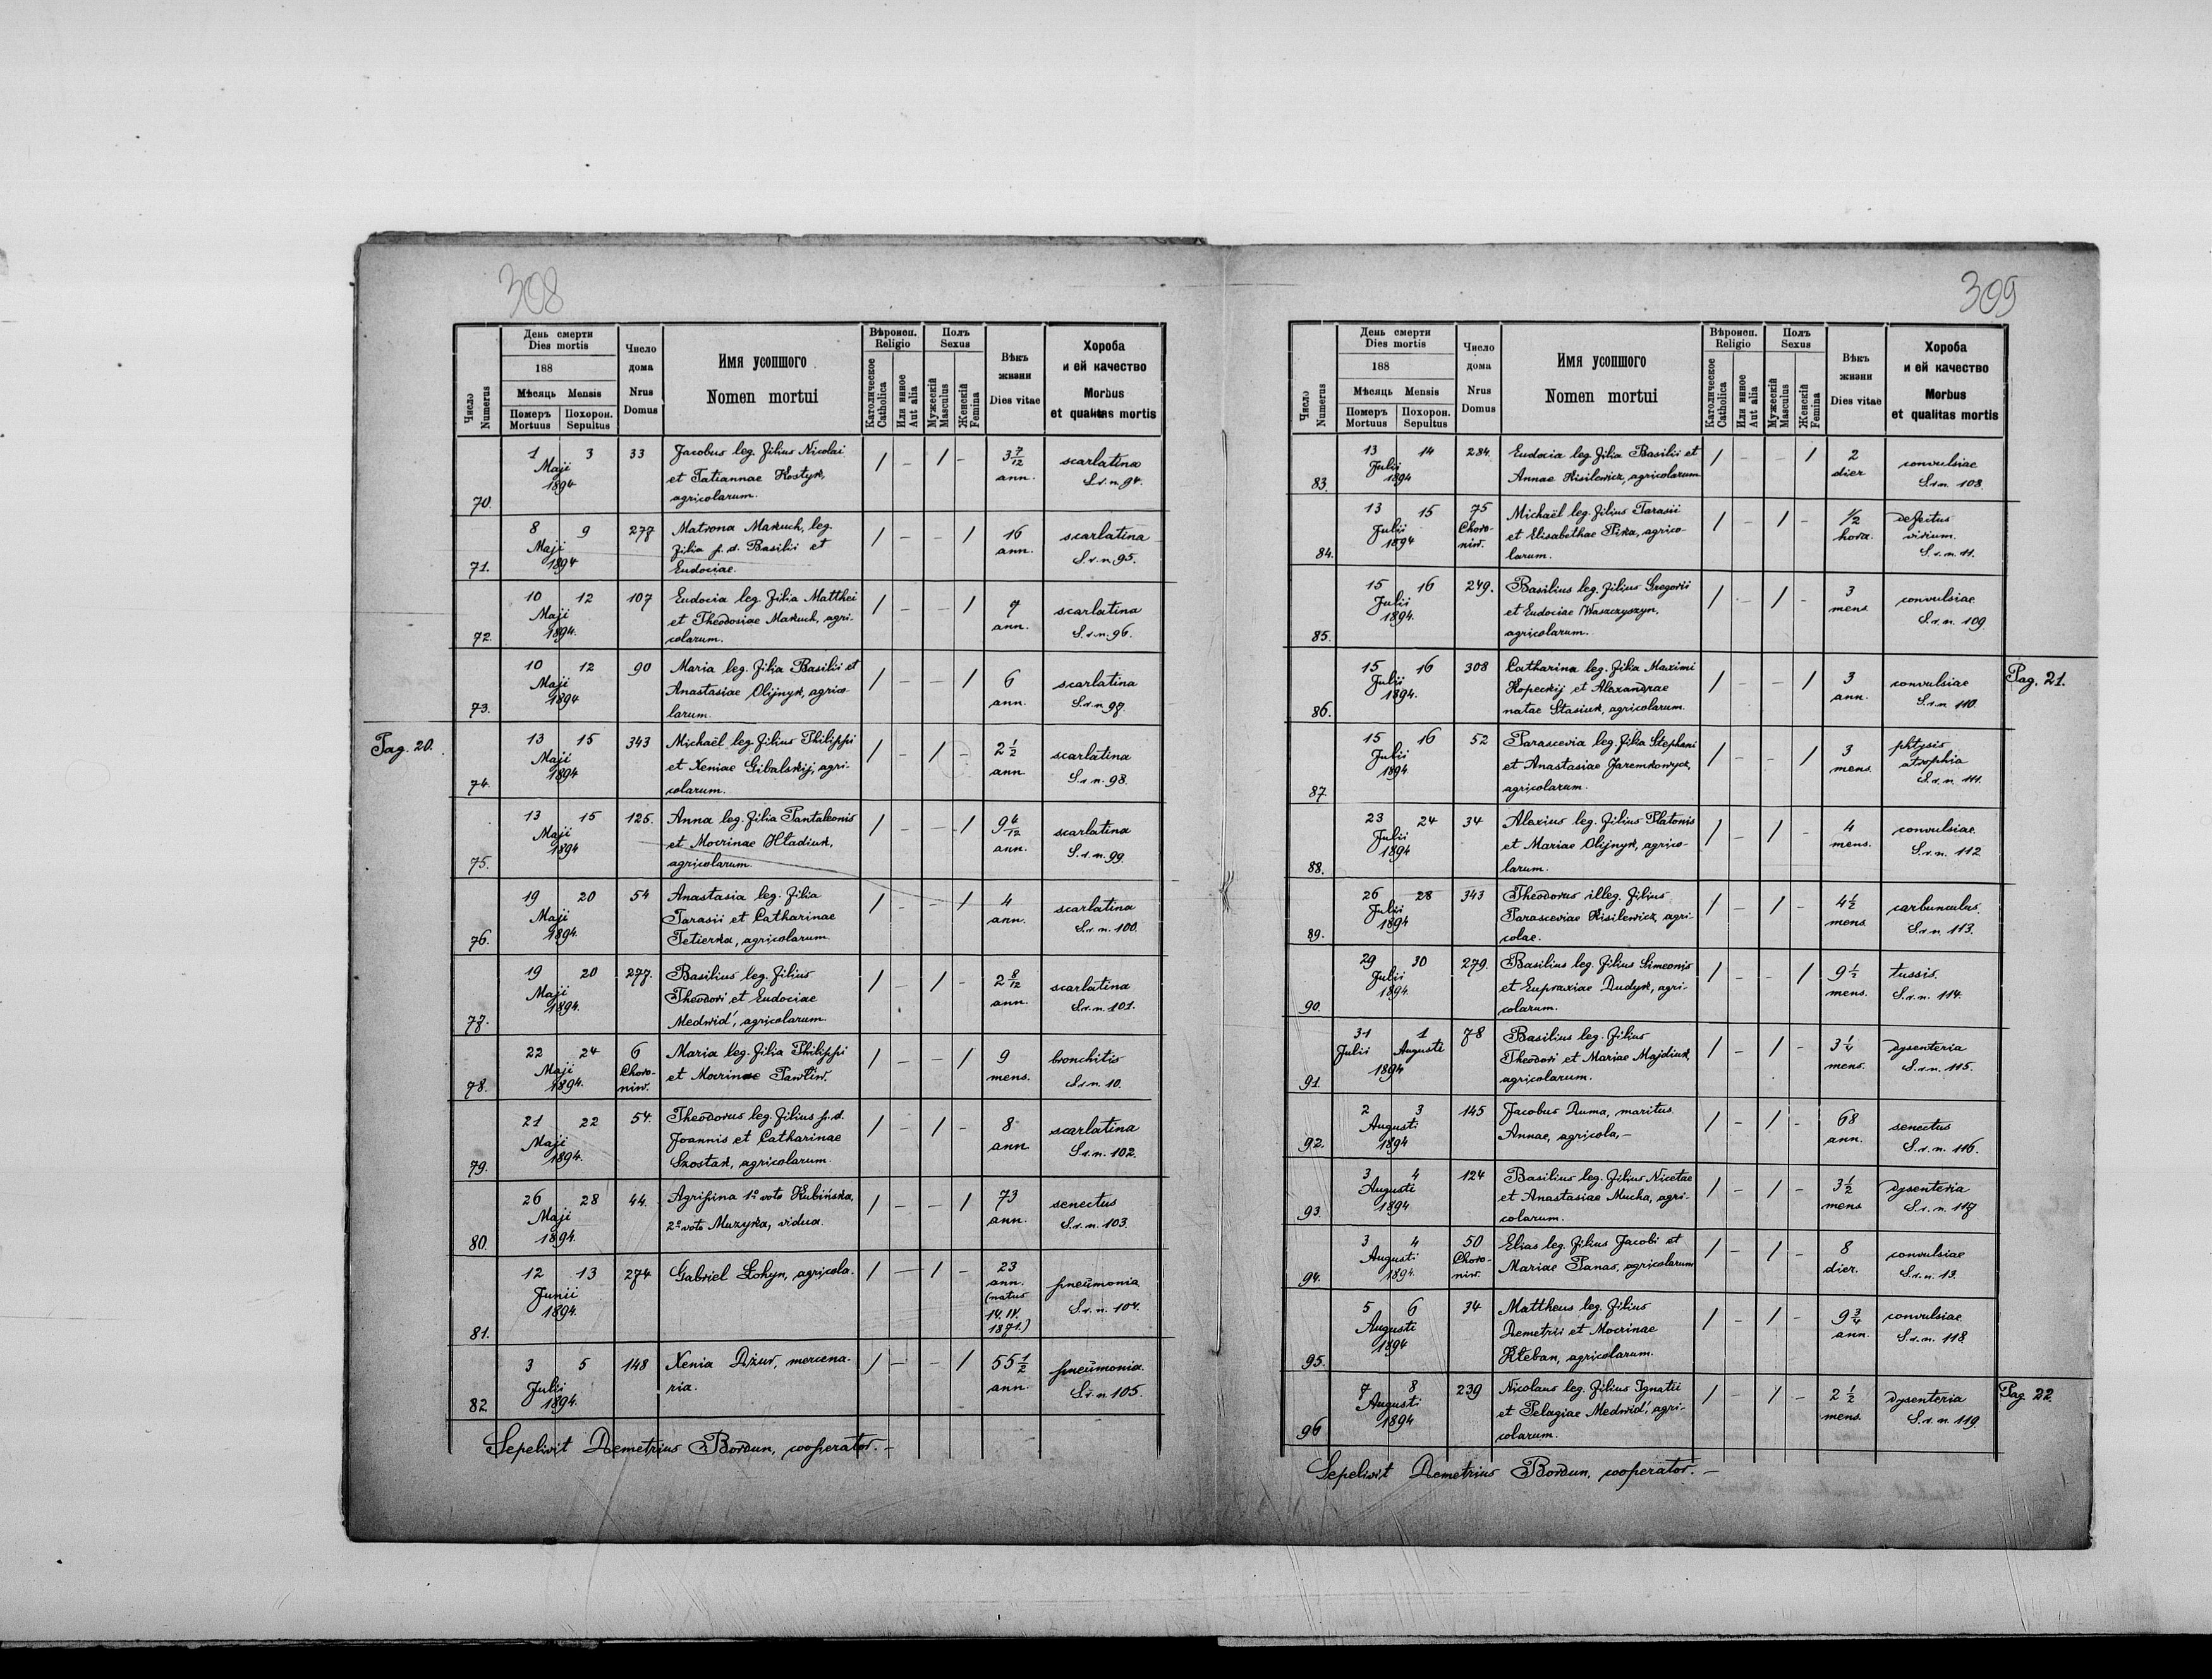 308
Число Numerus
День смерти
Dies mortis
188
Мѣсяць Mensis
Померъ Mortuus
Похорон. Sepultus
Число дома
Nrus Domus
Имя усопшого
Nomen mortui
Вѣроисп.
Religio
Католическое Catholica
Или инное Aut alia
Полъ
Sexus
Мужескій Masculus
Женскій Femina
Вѣкъ жизни
Dies vitae
Хороба
и ей качество
Morbus
et qualitas mortis
70. 1 3 Maji 1894 33 Jacobus leg. filius Nicolai / – / – 3 7/12 ann. scarlatina
et Tatiannae Kostyk, S.r.n. 94.
agricolarum.
71. 8 9 Maji 1894 277 Matrona Makuch, leg. / – – / 16 ann. scarlatina
filia p. d. Basilii et S.r.n. 95.
Eudociae.
72. 10 12 Maji 1894. 107 Eudocia leg. filia Matthei / – – / 7 ann. scarlatina
et Theodosiae Makuch, agri- S.r.n. 96.
colarum.
73. 10 12 Maji 1894 90 Maria leg. filia Basilii et / – – / 6 ann. scarlatina
Anastasiae Olijnyk, agrico- S.r.n. 97.
larum.
Pag. 20.
74. 13 15 Maji 1894 343 Michaël leg. filius Philippi / – / – 2 1/2 ann scarlatina
et Xeniae Gibalskij, agri- S.r.n. 98.
colarum.
75. 13 15 Maji 1894 125. Anna leg. filia Pantaleonis / – – / 9 4/12 ann. scarlatina
et Mocrinae Hladiuk, S.r.n. 99.
agricolarum.
76. 19 20 Maji 1894. 54 Anastasia leg. filia / – – / 4 ann. scarlatina
Tarasii et Catharinae S.r.n. 100.
Tetierka, agricolarum.
77. 19 20 Maji 1894. 277. Basilius leg. filius / – / – 2 8/12 ann. scarlatina
Theodori et Eudociae S.r.n. 101.
Medwid', agricolarum.
78. 22 24 Maji 1894. 6 Choro- niw. Maria leg. filia Philippi / – – / 9 mens. bronchitis
et Mocrinae Pawliw. S.r.n. 10.
79. 21 22 Maji 1894. 54. Theodorus leg. filius p. d. / – / – 8 ann scarlatina
Joannis et Catharinae S.r.n. 102.
Szostak, agricolarum.
80. 26 28 Maji 1894. 44. Agripina 1º voto Kubińska, / – – / 73 ann. senectus
2º voto Muzyka, vidua. S.r.n. 103.
81. 12 13 Junii 1894. 274 Gabriel Łohyn, agricola. / – / – 23 ann. (natus 14. IV. 1871.) pneumonia
S.r.n. 104.
82 3 5 Julii 1894. 148 Xenia Dżur, mercena- / – – / 55 1/2 ann. pneumonia.
ria. S.r.n. 105.
Sepelivit Demetrius Bordun, cooperator. –
309
Число Numerus
День смерти
Dies mortis
188
Мѣсяць Mensis
Померъ Mortuus
Похорон. Sepultus
Число дома
Nrus Domus
Имя усопшого
Nomen mortui
Вѣроисп.
Religio
Католическое Catholica
Или инное Aut alia
Полъ
Sexus
Мужескій Masculus
Женскій Femina
Вѣкъ жизни
Dies vitae
Хороба
и ей качество
Morbus
et qualitas mortis
83. 13 14 Julii 1894 284. Eudocia leg. filia Basilii et / – – / 2 dier convulsiae
Annae Kisilewicz, agricolarum S.r.n. 108.
84. 13 15 Julii 1894 75 Choro- niw. Michaël leg. filius Tarasii / – / – 1/2 hora. defectus virium.
et Elisabethae Pika, agrico- S.r.n. 11.
larum.
85. 15 16 Julii 1894. 249. Basilius leg. filius Gregorii / – / – 3 mens. convulsiae
et Eudociae Waszczyszyn, S.r.n. 109.
agricolarum.
Pag. 21.
86. 15 16 Julii 1894. 308 Catharina leg. filia Maximi / – – / 3 ann. convulsiae
Kopeckij et Alexandrae S.r.n. 110.
natae Stasiuk, agricolarum.
87. 15 16 Julii 1894 52 Parascevia leg. filia Stephani / – – / 3 mens. phtysis atrophia
et Anastasiae Jaremkowycz, S.r.n. 111.
agricolarum.
88. 23 24 Julii 1894 34 Alexius leg. filius Platonis / – / – 4 mens. convulsiae.
et Mariae Olijnyk, agrico- S.r.n. 112.
larum.
89. 26 28 Julii 1894 343 Theodorus illeg. filius / – / – 4 1/2 mens. carbunculus.
Parasceviae Kisilewicz, agri- S.r.n. 113.
colae.
90. 29 30 Julii 1894. 279. Basilius leg. filius Simeonis / – – / 9 1/2 mens. tussis.
et Eupraxiae Dudyk, agri- S.r.n. 114.
colarum.
91. 31 Julii 1 Augusti 1894 78 Basilius leg. filius / – / – 3 1/4 mens. dysenteria
Theodori et Mariae Majdiuk, S.r.n. 115.
agricolarum.
92. 2 3 Augusti 1894 145 Jacobus Duma, maritus / – / – 68 ann. senectus
Annae, agricola, – S.r.n. 116.
93. 3 4 Augusti 1894 124 Basilius leg. filius Nicetae / – / – 3 1/2 mens. dysenteria
et Anastasiae Mucha, agri- S.r.n. 117
colarum.
94. 3 4 Augusti 1894. 50 Choro- niw. Elias leg. filius Jacobi et / – / – 8 dier. convulsiae
Mariae Panas, agricolarum S.r.n. 13.
95. 5 6 Augusti 1894 34 Mattheus leg. filius / – / – 9 3/4 ann. convulsiae.
Demetrii et Mocrinae S.r.n. 118.
Kłeban, agricolarum.
Pag. 22.
96 7 8 Augusti 1894 239 Nicolaus leg. filius Ignatii / – / – 2 1/2 mens. dysenteria
et Pelagiae Medwid', agri- S.r.n. 119
colarum.
Sepelivit Demetrius Bordun, cooperator. –